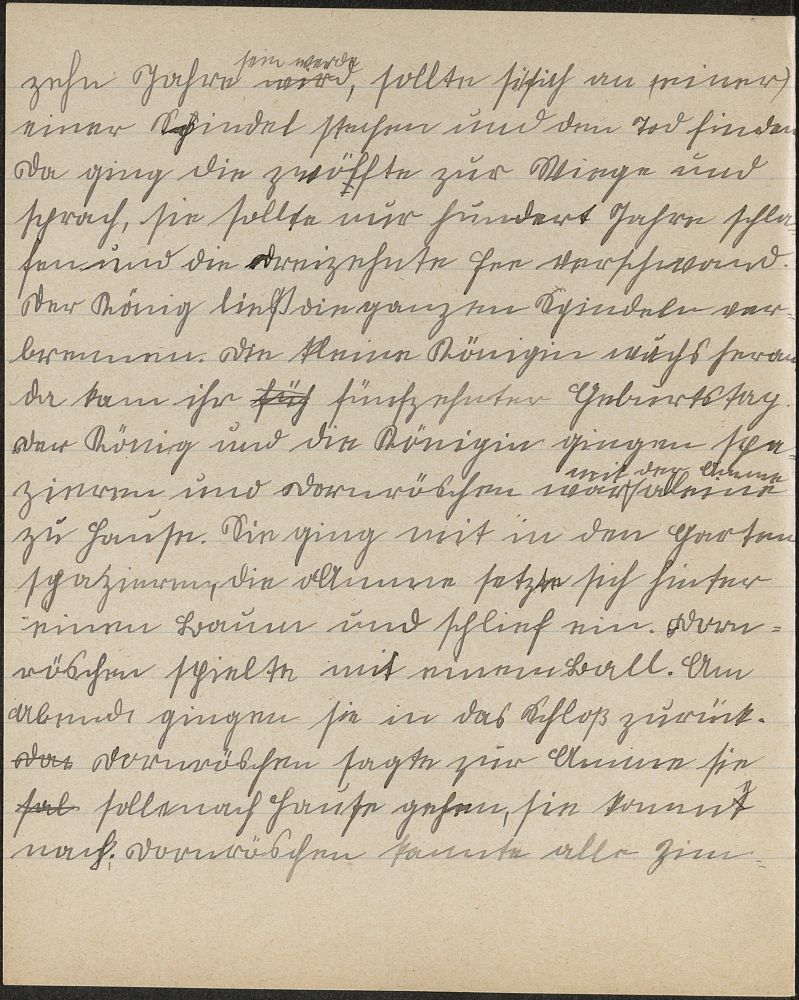 sein werde
zehn Jahre wird, sollte sisich an (einer)
einer Spindel stechen und den Tod finden
Da ging die zwölffte zur Wiege und
sprach, sie sollte nur hundert Jahre schla-
fen und die dreizehnte Fee verschwand.
Der König ließ die ganzen Spindeln ver-
brennen. Die kleine Königin wuchs heran
da kam ihr füf fünfzehnter Geburtstag.
Der König und die Königin gingen spa-
mit der Amme
zieren und Dornröschen war aleine
zu Hause. Sie ging mit in den Garten
spazieren, die Amme setzte sich hinter
einen Baum und schlief ein. Dorn-
röschen spielte mit einem Ball. Am
Abend gingen sie in das Schloß zurück.
Das Dornröschen sagte zur Amme sie
sol solle nach Hause gehen, sie kommt
nach. Dornröschen kannte alle Zim-